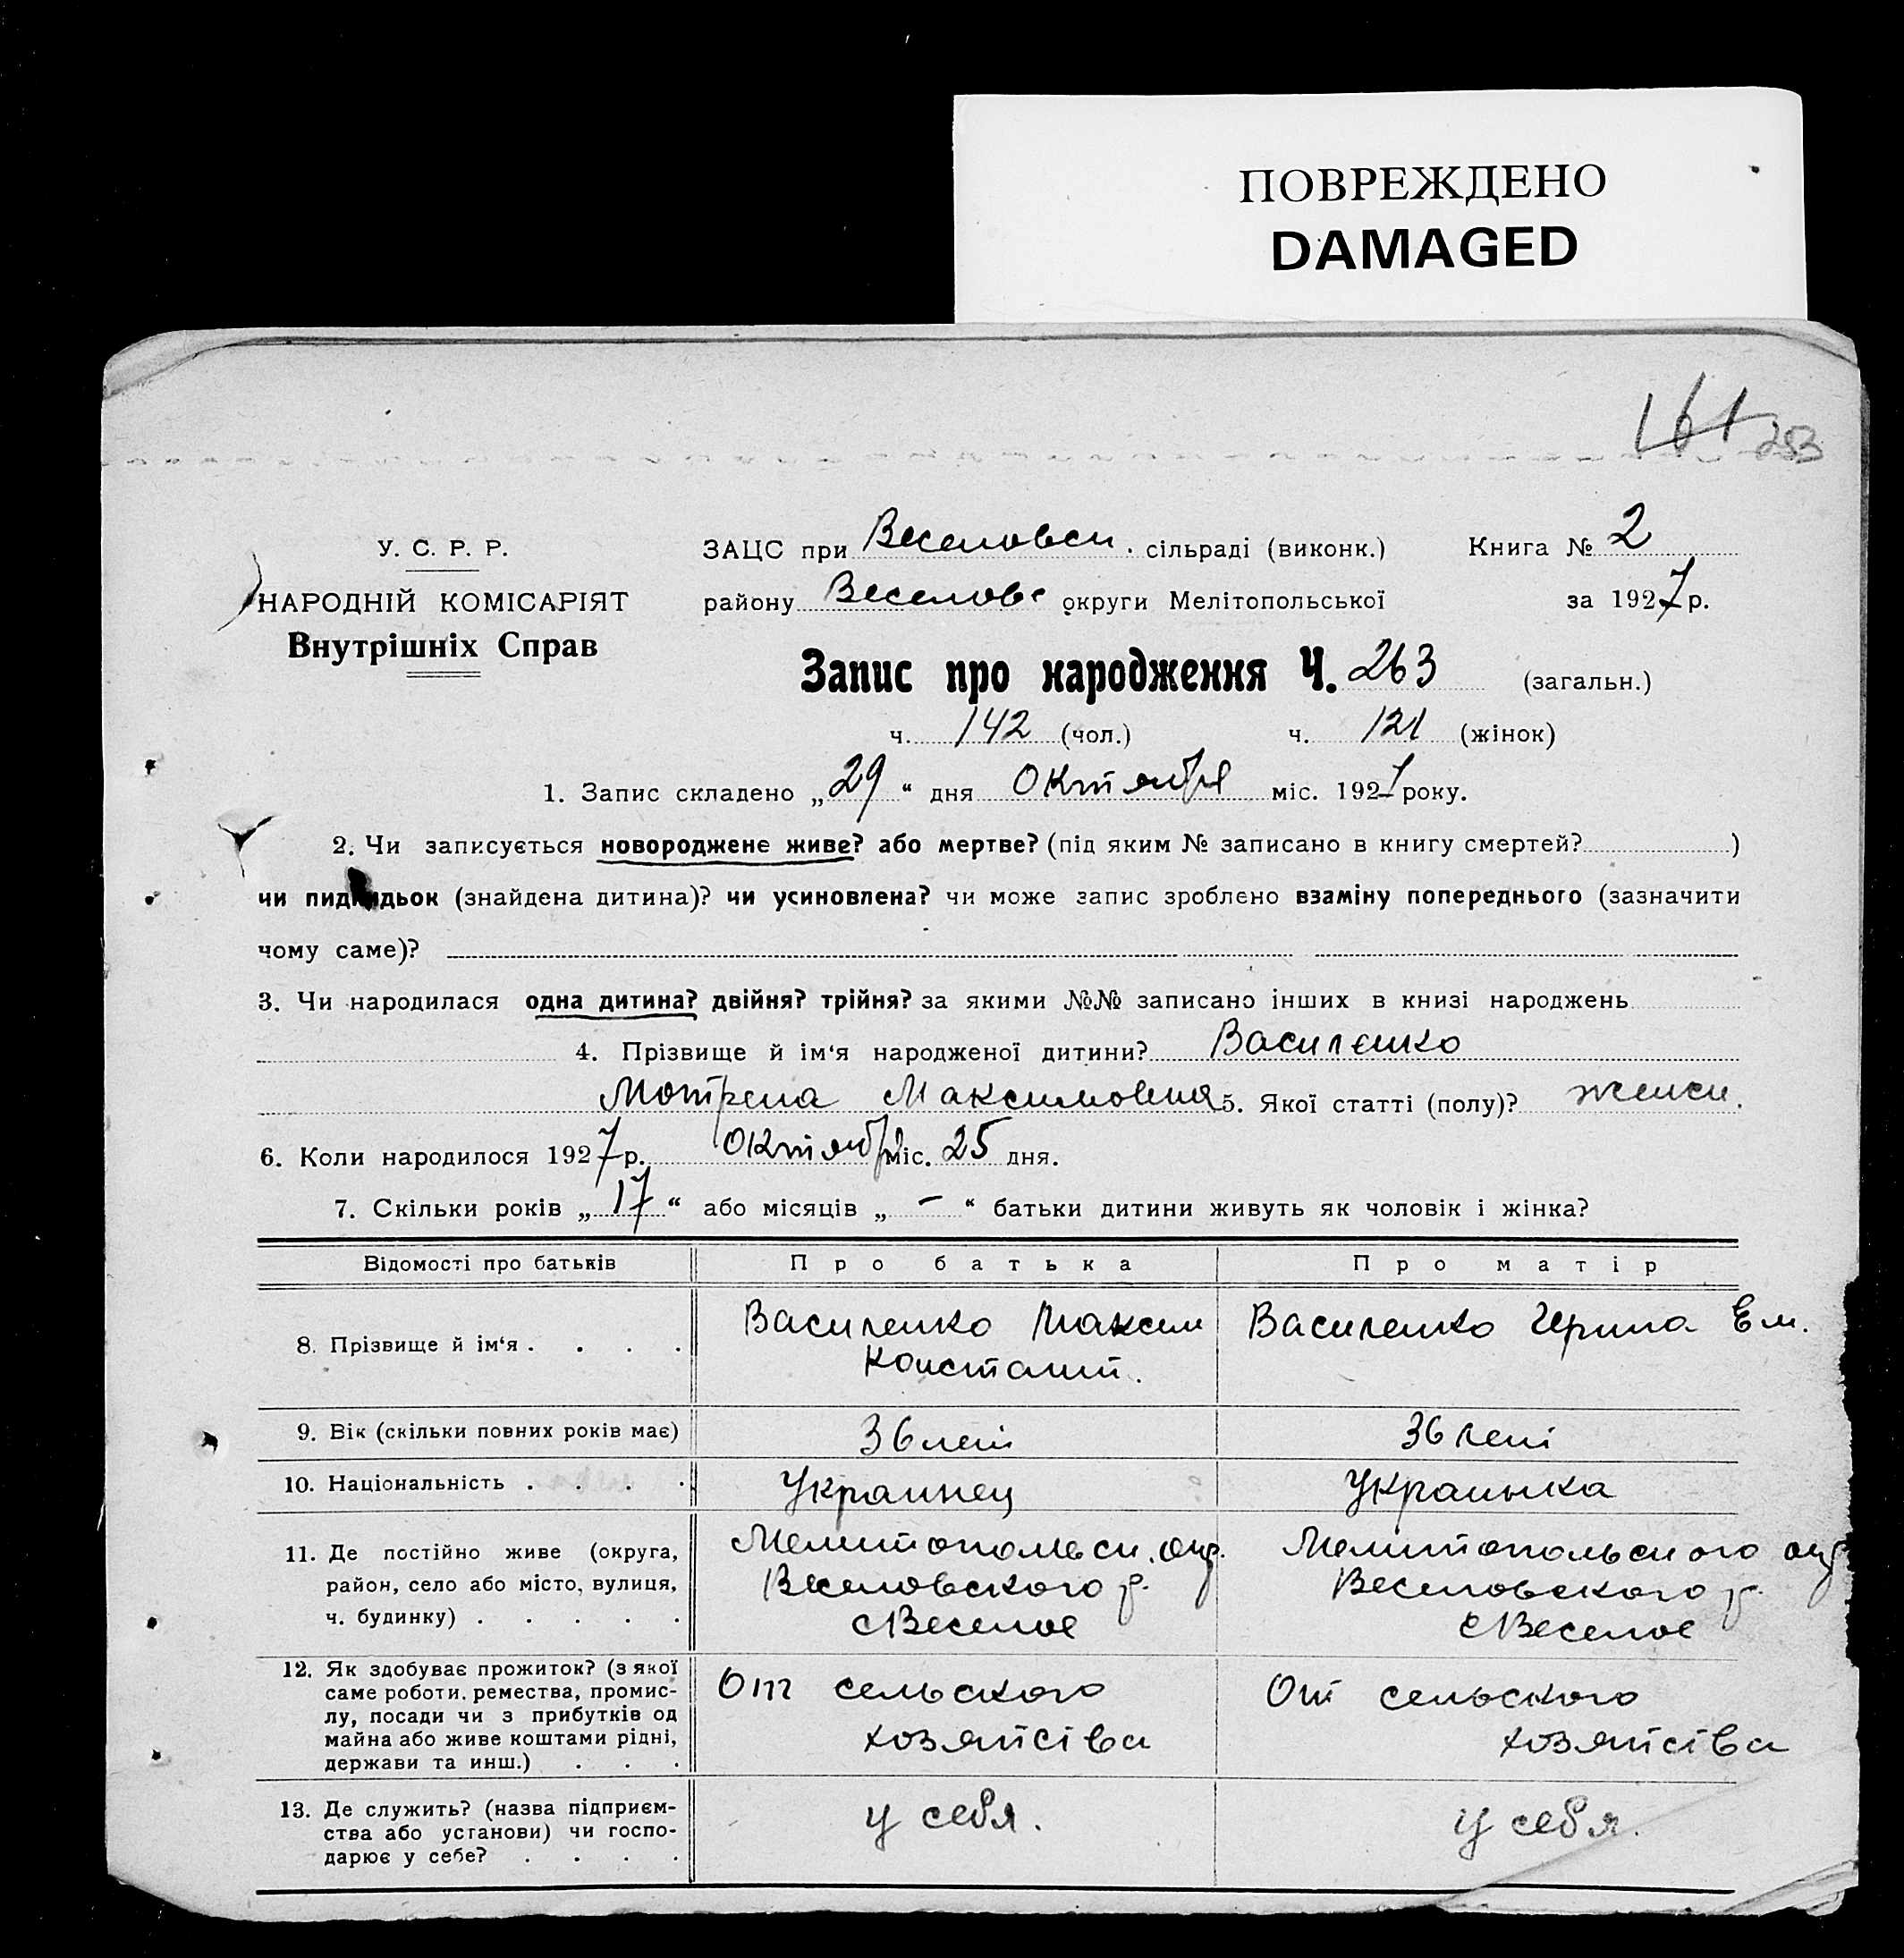 ПОВРЕЖДЕНО
DAMAGED
161 253
У. С. Р. Р.
НАРОДНІЙ КОМІСАРІЯТ
Внутрішніх Справ
ЗАЦС при Веселовск. сільраді (виконк.) Книга № 2
району Веселовс округи Мелітопольської за 1927 р.
Запис про народження Ч. 263 (загальн.)
ч. 142 (чол.) ч. 121 (жінок)
1. Запис складено „29“ дня Октября міс. 1927 року.
2. Чи записується новороджене живе? або мертве? (під яким № записано в книгу смертей? )
чи підкидьок (знайдена дитина)? чи усиновлена? чи може запис зроблено взаміну попереднього (зазначити
чому саме)?
3. Чи народилася одна дитина? двійня? трійня? за якими №№ записано інших в книзі народжень
4. Прізвище й ім‘я народженої дитини? Василенко
Мотрена Максимовна 5. Якої статті (полу)? женск.
6. Коли народилося 1927 р. Октября міс. 25 дня.
7. Скільки років „17“ або місяців „—“ батьки дитини живуть як чоловік і жінка?
Відомості про батьків Про батька Про матір
8. Прізвище й ім‘я . . . . Василенко Максим Василенко Ирина Ем.
Констант.
9. Вік (скільки повних років має) 36 лет 36 лет
10. Національність . . . . Украинец Украинка
11. Де постійно живе (округа, Мелитопольск. окр. Мелитопольского окр
район, село або місто, вулиця, Веселовского р. Веселовского р.
ч. будинку) . . . . . с Веселое с Веселое
12. Як здобуває прожиток? (з якої
саме роботи, ремества, промис- От сельского От сельского
лу, посади чи з прибутків од
майна або живе коштами рідні, хозяйства хозяйства
держави та инш.) . . .
13. Де служить? (назва підприєм- у себя. у себя.
ства або установи) чи госпо-
дарює у себе? . . . .